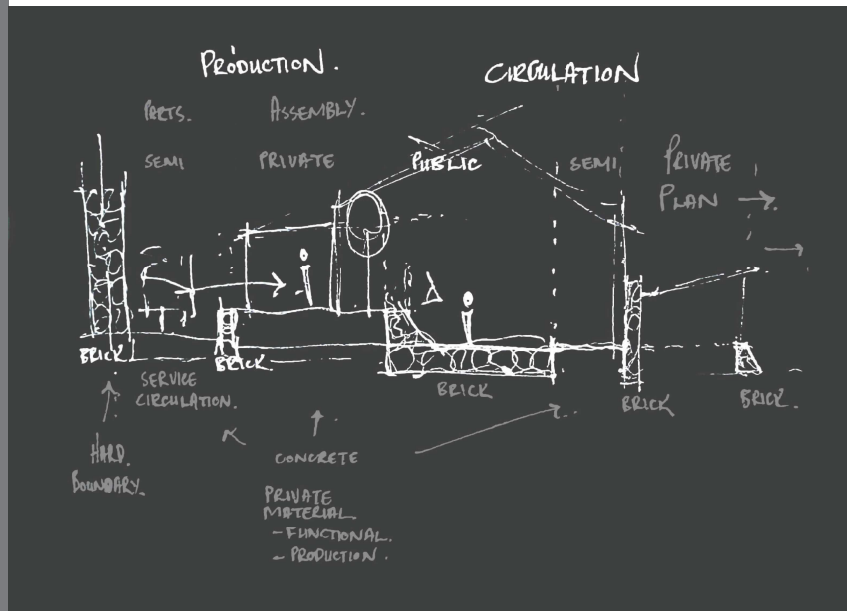 PRODUCTION.
CIRCULATION
PARTS.
ASSEMBLY.
SEMI
PRIVATE
PUBLIC
SEMI
PRIVATE
PLAN
BRICK
BRICK
BRICK
BRICK
BRICK.
SERVICE
CIRCULATION.
HARD.
BOUNDARY.
CONCRETE
PRIVATE
MATERIAL
- FUNCTIONAL.
- PRODUCTION.